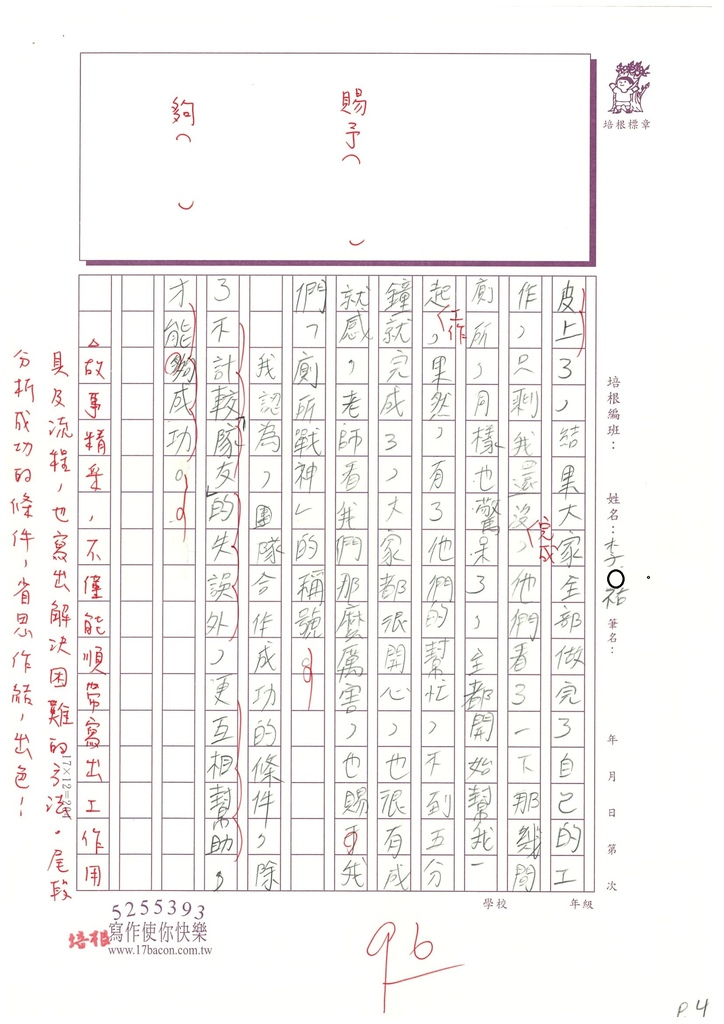 賜予（　）
夠（　）
培根標章
培根編班：
姓名：李○祐
筆名：
年 月 日 第 次
學校 年級
皮上了，結果大家全部做完了自己的工
作，只剩我還沒，他們看了一下那幾間
完成
廁所，月樣也驚呆了，全都開始幫我一
起，果然，有了他們的幫忙，不到五分
工作
鐘就完成了，大家都很開心，也很有成
就感，老師看我們那麼厲害，也賜予我
們，「廁所戰神」的稱號。
我認為，團隊合作成功的條件，除
了不計較隊友的失誤外，更互相幫助，
才能夠成功。
△故事精采，不僅能順常寫出工作用
具及流程，也寫出解決困難的方法。尾段
分析成功的條件，省思作結，出色！
5255393
培根 寫作使你快樂
www.17bacon.com.tw
96
P.4